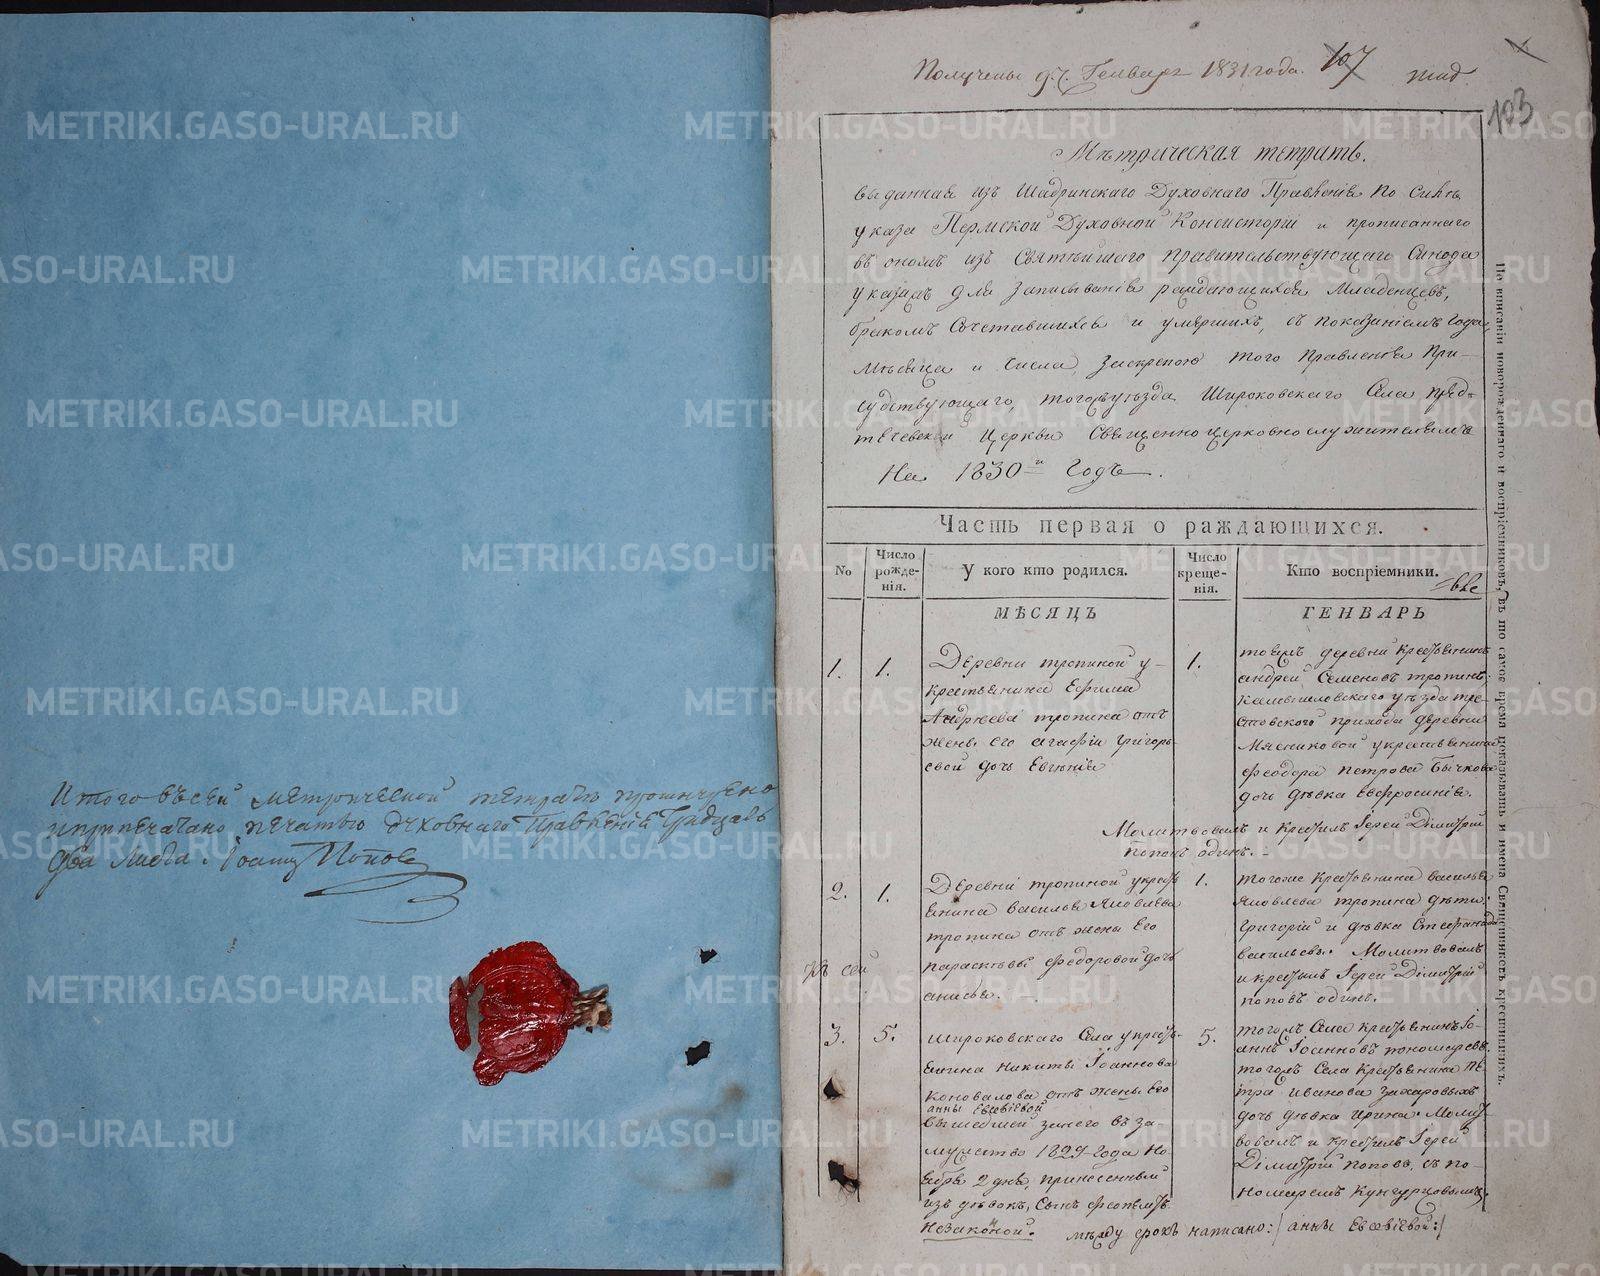 Итого въ сей метрической тетрате прошнурено
и припечатано печатью духовнаго Правленія Тридцать
два листа Іоаннъ Поповъ
Получены Генваря 1831 года. 107
103
Мѣтрическая тетрать.
выданная изъ Шадринскаго Духовнаго Правленія по силѣ
указа Пермской Духовной Консисторіи и прописаннаго
въ ономъ изъ Святѣйшаго правительствующаго Синода
указамъ для записыванія раждающихся Младенцевъ,
бракомъ Сочетавшихся и умершихъ, съ показаніемъ года,
Мѣсяца и числа, заскрепою того Правленія При-
судствующаго, тогожъ уѣзда Широковскаго Села пред-
течевской Церкви Священно церковно служителямъ
На 1830-й Годъ.
Часть первая о раждающихся.
No
Число рожде-нія.
У кого кто родился.
Число креще-нія.
Кто воспріемники.
МѢСЯЦЪ ГЕНВАРЬ
1. 1.
Деревни тропиной у
крестьянина Ефима
Андреева тропина отъ
жены его агафіи григорь-
евой дочь Евгенія
1.
тоежъ деревни крестьянинъ
андрей Семеновъ тропинъ.
камышловскаго уѣзда
прихода деревни
Мясниковой у крестьянина
феодора петрова Бычкова
дочь дѣвка евфросинія.
Молитвовалъ и крестилъ Іерей Димитрій
поповъ одинъ.
2. 1.
Деревни тропиной у кресть
янина василья Яковлева
тропина отъ жены его
параскевы федоровой дочь
анисья.
1.
тогоже крестьянина василья
Яковлева тропина дѣти
григорій и дѣвка Стефанида
васильевы. Молитвовалъ
и крестилъ Іерей Димитрій
поповъ одинъ.
3. 5.
Широковскаго Села у кресть-
янина Никиты Іоаннова
коновалова отъ жены его
анны Евсевіевой
вышедшей занего въ за-
мужство 1829 года но-
ября 2 дня, принесенный
изъ дѣвокъ, сынъ феопемптъ
незаконой.
5.
тогожъ Села крестьянинъ Іо-
аннъ Іоанновъ пономаревъ.
тогожъ Села крестьянина пе-
тра иванова захаровыхъ
дочь дѣвка ирина. Молит-
вовалъ и крестилъ Іерей
Димитрій поповъ, съ по-
номаремъ кунгурцовымъ.
между срокъ написано: / анны Евсевіевой: /
По вписаніи новорожденнаго и воспріемниковъ, въ то самое время показывать и имена Священниковъ крестившихъ.
METRIKI.GASO-URAL.RU